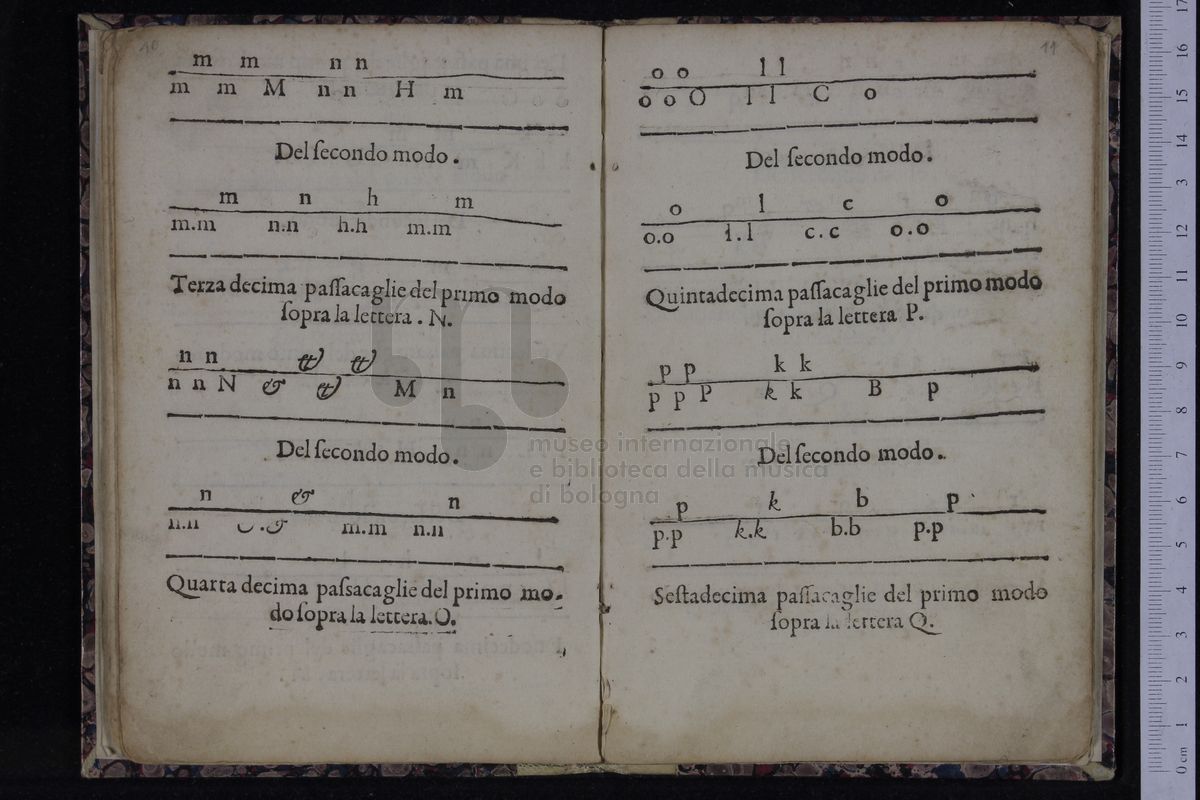 10
m m n n
m m M n n H m
Del ſecondo modo.
m n h m
m.m n.n h.h m.m
Terza decima paſſacaglie del primo modo
ſopra la lettera . N.
n n & &
n n N & & M n
Del ſecondo modo.
n & n
n.n &.& m.m n.n
Quarta decima paſsacaglie del primo mo-
do ſopra la lettera. O.
11
o o l l
o o O l l C o
Del ſecondo modo.
o l c o
o.o l.l c.c o.o
Quintadecima paſſacaglie del primo modo
ſopra la lettera P.
p p k k
p p P k k B p
Del ſecondo modo.
p k b p
p.p k.k b.b p.p
Seſtadecima paſſacaglie del primo modo
ſopra la lettera Q.
museo internazionale
e biblioteca della musica
di bologna
0 cm 1 2 3 4 5 6 7 8 9 10 11 12 13 14 15 16 17